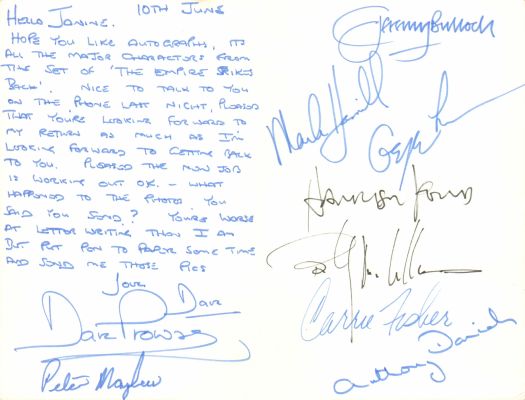 10TH JUNE
HELLO JANINE.
HOPE YOU LIKE AUTOGRAPH, IT'S
ALL THE MAJOR CHARACTORS FROM
THE SET OF 'THE EMPIRE STRIKES
BACK'. NICE TO TALK TO YOU
ON THE PHONE LAST NIGHT, PLEASED
THAT YOU'RE LOOKING FORWARD TO
MY RETURN AS MUCH AS I'M
LOOKING FORWARD TO GETTING BACK
TO YOU. PLEASED THE NEW JOB
IS WORKING OUT OK. - WHAT
HAPPENED TO THE PHOTO'S YOU
SAID YOU SEND? YOU'RE WORSE
AT LETTER WRITING THAN I AM
BUT PUT PEN TO PAPER SOME TIME
AND SEND ME THOSE PICS
Love
Dave
Dave Prowse
Peter Mayhew
Jeremy Bulloch
Mark Hamill
George Lucas
Harrison Ford
Billy Dee Williams
Carrie Fisher
Anthony Daniels